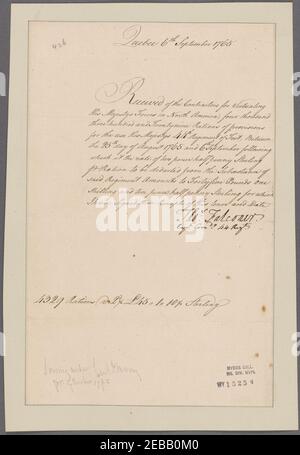 436
Quebec 6th September 1765
Received of the Contractors for Victualing
His Majestys Forces in North America, four thousand
three hundred and Twentynine Rations of provisions
for the use His Majestys 44th Regiment of Foot, Between
the 25th day of August 1765 and 6th September following
which at the rate of two pence half penny Sterling
Ration to be deducted from the Subsistance of
said Regiment Amounts to Fortyfive Pounds one
Shilling and ten pence half penny Sterling for which
I have signed of this tenor and Date
Thos Falconer
44 Regt
4329 Rations £45 .. 1 .. 10½ Sterling
MYERS COLL.
MS. DIV. NYPL
MY 1525
alamy
Image ID: 2EBB0M0
www.alamy.com